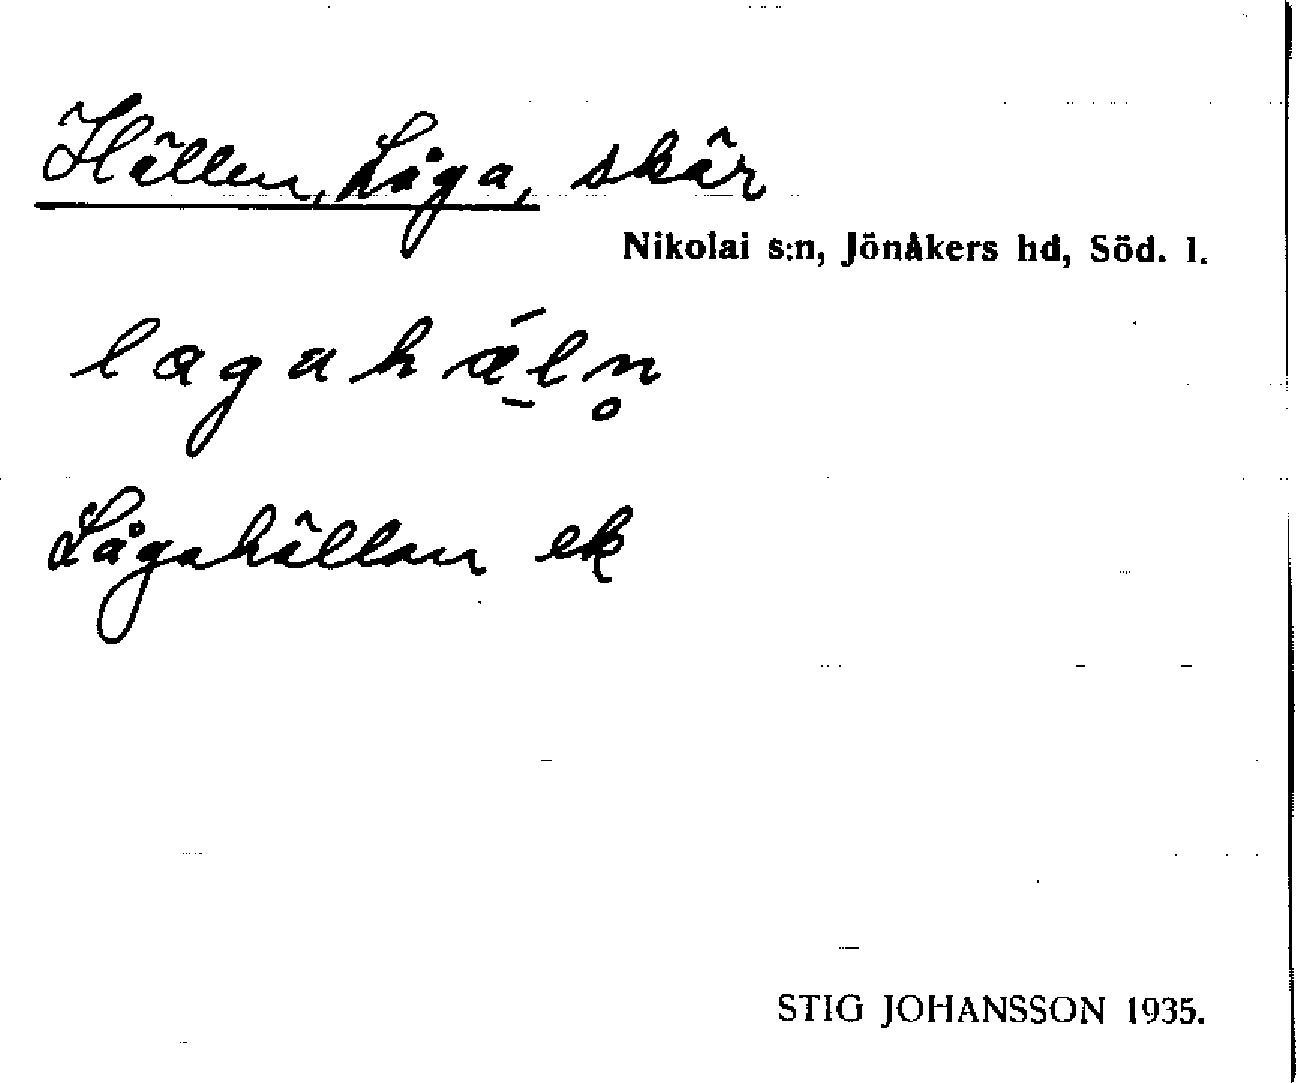 Hällen, Låga, skär
Nikolai s:n, Jönåkers hd, Söd. l.
Lågahällan ek
STIG JOHANSSON 1935.